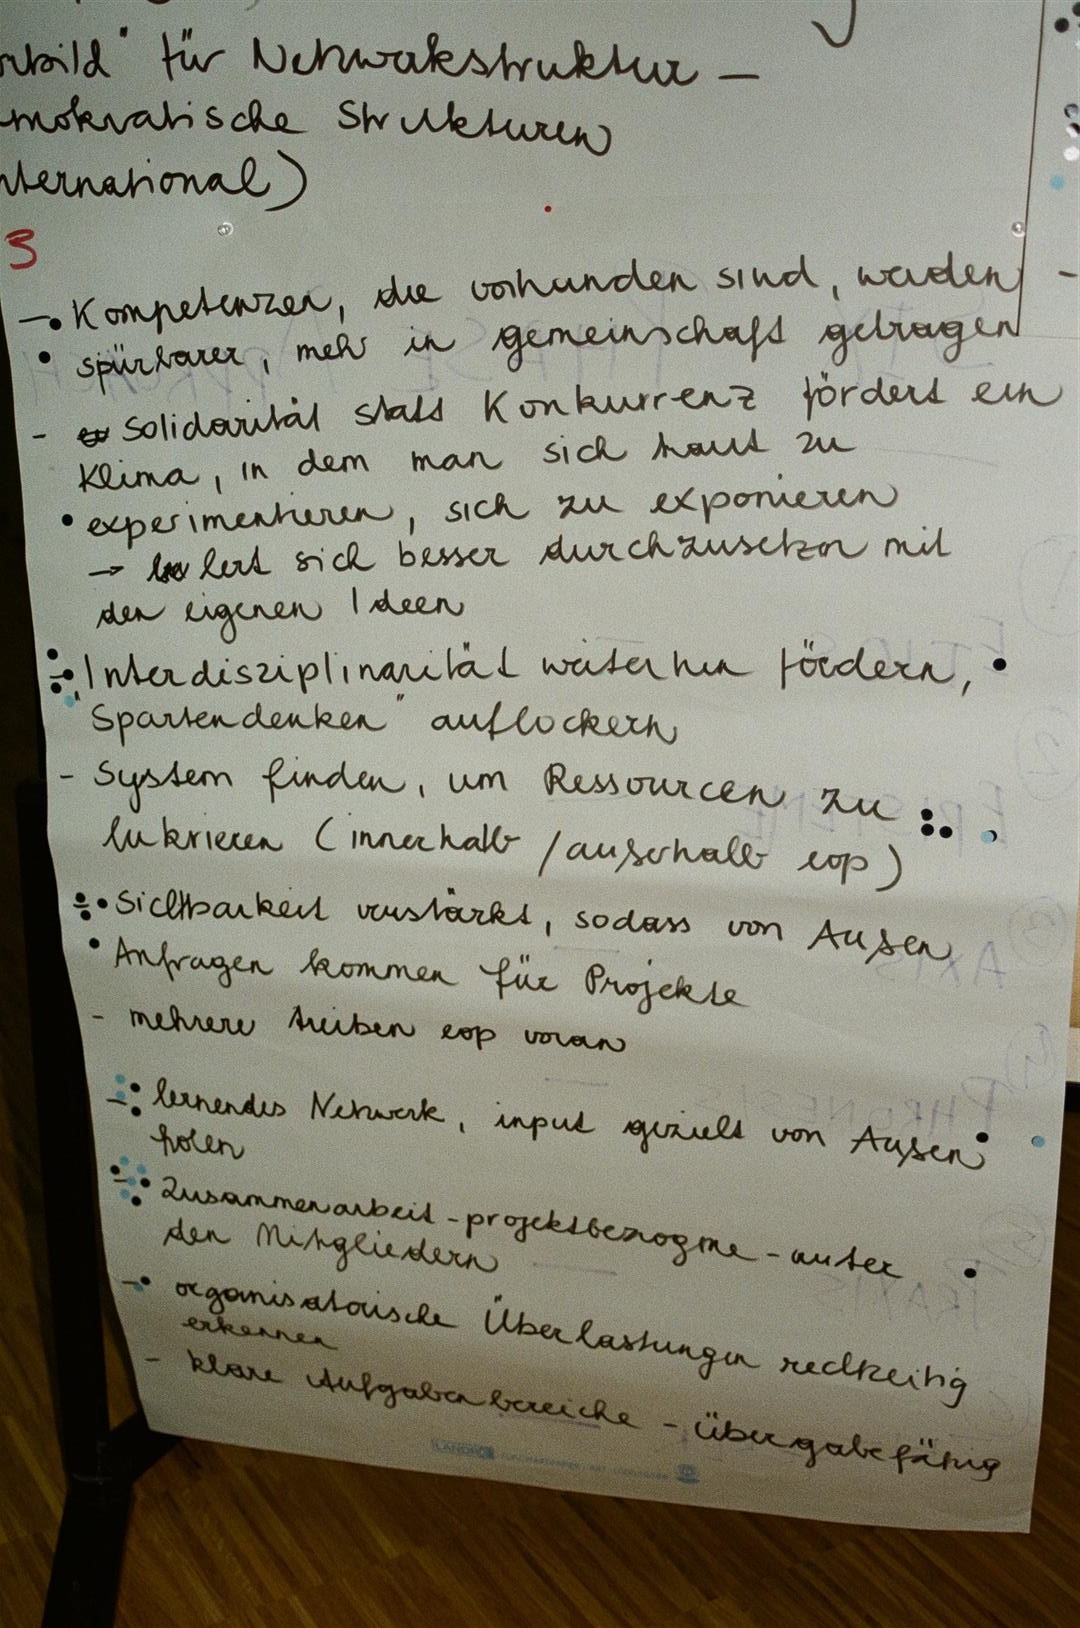 rbild" für Netzwerkstruktur –
mokratische Strukturen
nternational)
3
– Kompetenzen, die vorhanden sind, werden –
spürbarer, mehr in gemeinschaft getragen
- Solidarität statt Konkurrenz fördert ein
Klima, in dem man sich traut zu
experimentieren, sich zu exponieren
→ lert sich besser durchzusetzen mit
den eigenen Ideen
- Interdisziplinarität weiterhin fördern,
"Spartendenken" auflockern
- System finden, um Ressourcen zu
lukrieren (innerhalb / außerhalb eop)
- Sichtbarkeit verstärkt, sodass von Außen
Anfragen kommen für Projekte
- mehrere treiben eop voran
- lernendes Netzwerk, input gezielt von Außen
holen
- Zusammenarbeit - projektbezogene - unter
den Mitgliedern
- organisatorische Überlastungen rechtzeitig
erkennen
- klare Aufgabenbereiche - übergabefähig